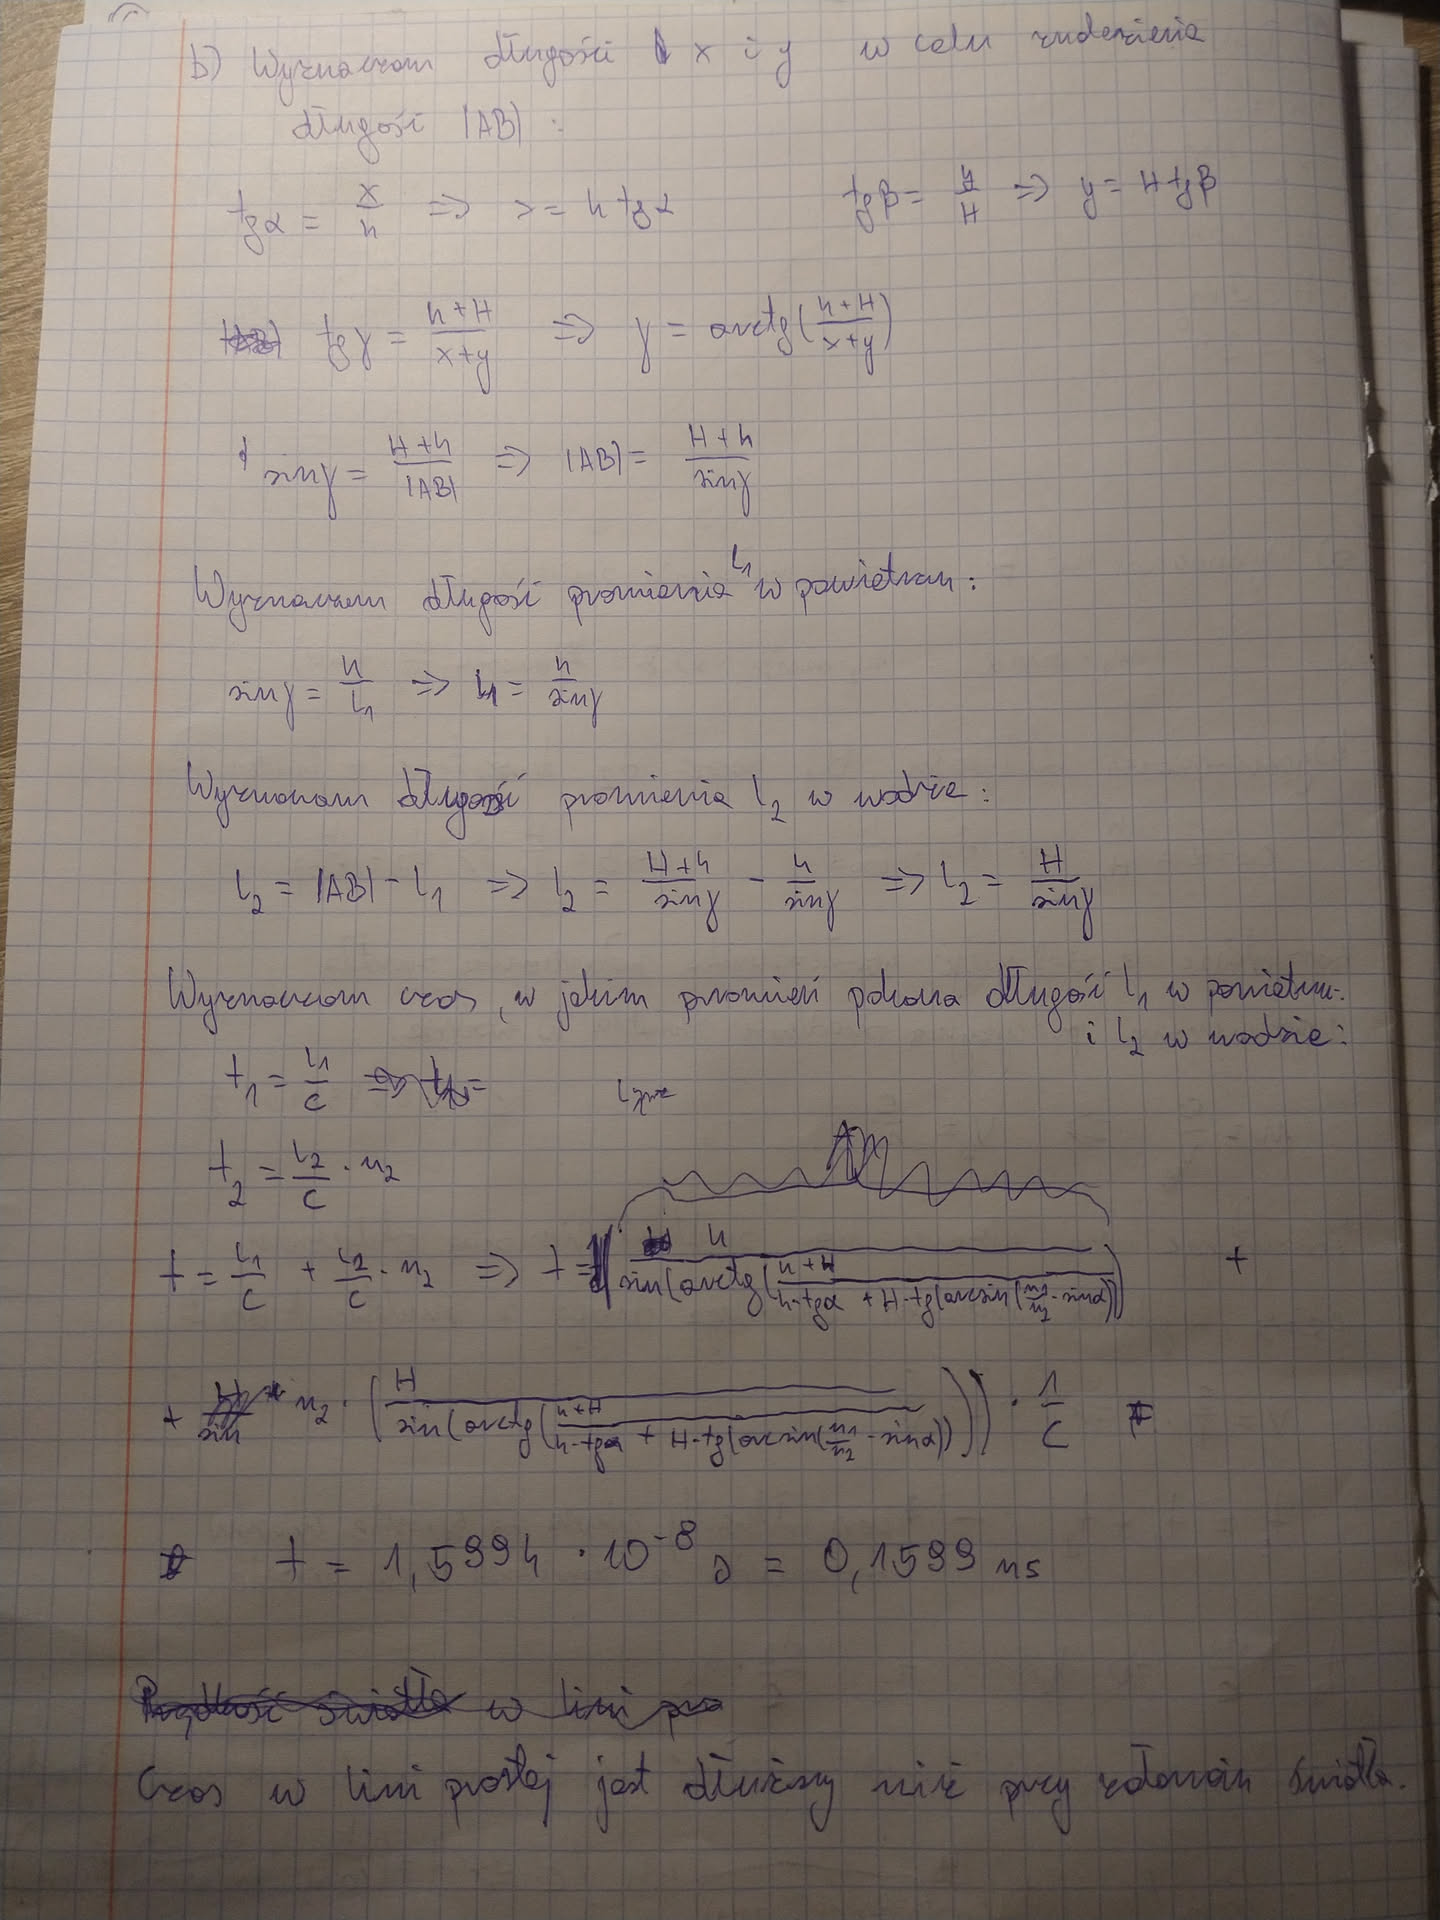 b) Wyznaczam długości x i y w celu znalezienia
długość |AB| :
tgα = x/h => x = h tgα tgβ = y/H => y = H tgβ
tgγ = (h+H)/(x+y) => γ = arctg((h+H)/(x+y))
sinγ = (H+h)/|AB| => |AB| = (H+h)/sinγ
Wyznaczam długość promienia l₁ w powietrzu:
sinγ = h/l₁ => l₁ = h/sinγ
Wyznaczam długość promienia l₂ w wodzie:
l₂ = |AB| - l₁ => l₂ = (H+h)/sinγ - h/sinγ => l₂ = H/sinγ
Wyznaczam czas, w jakim promień pokona długość l₁ w powietrzu
i l₂ w wodzie:
t₁ = l₁/c
t₂ = l₂/c · n₂
t = l₁/c + l₂/c · n₂ => t = (h/sin(arctg((h+H)/(h·tgα + H·tg(arcsin(n₁/n₂ · sinα)))) +
+ n₂ · (H/sin(arctg((h+H)/(h·tgα + H·tg(arcsin(n₁/n₂ · sinα))))))) · 1/c
t = 1,5994 · 10⁻⁸ s = 0,1599 ns
Czas w lini prostej jest dłuższy niż przy załamaniu światła.